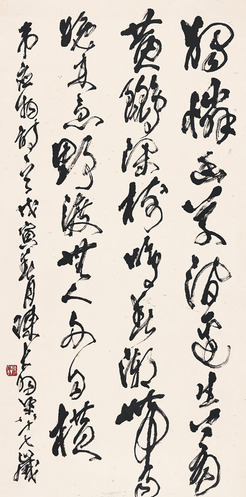 獨憐幽草澗邊生上有
黃鸝深樹鳴春潮帶雨
晚來急野渡無人舟自橫
韋應物詩 戊寅 月陳大羽 八十七識